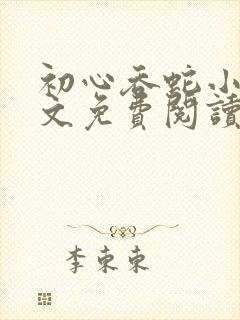 初心吞蛇小
文免費閱讀
李東東